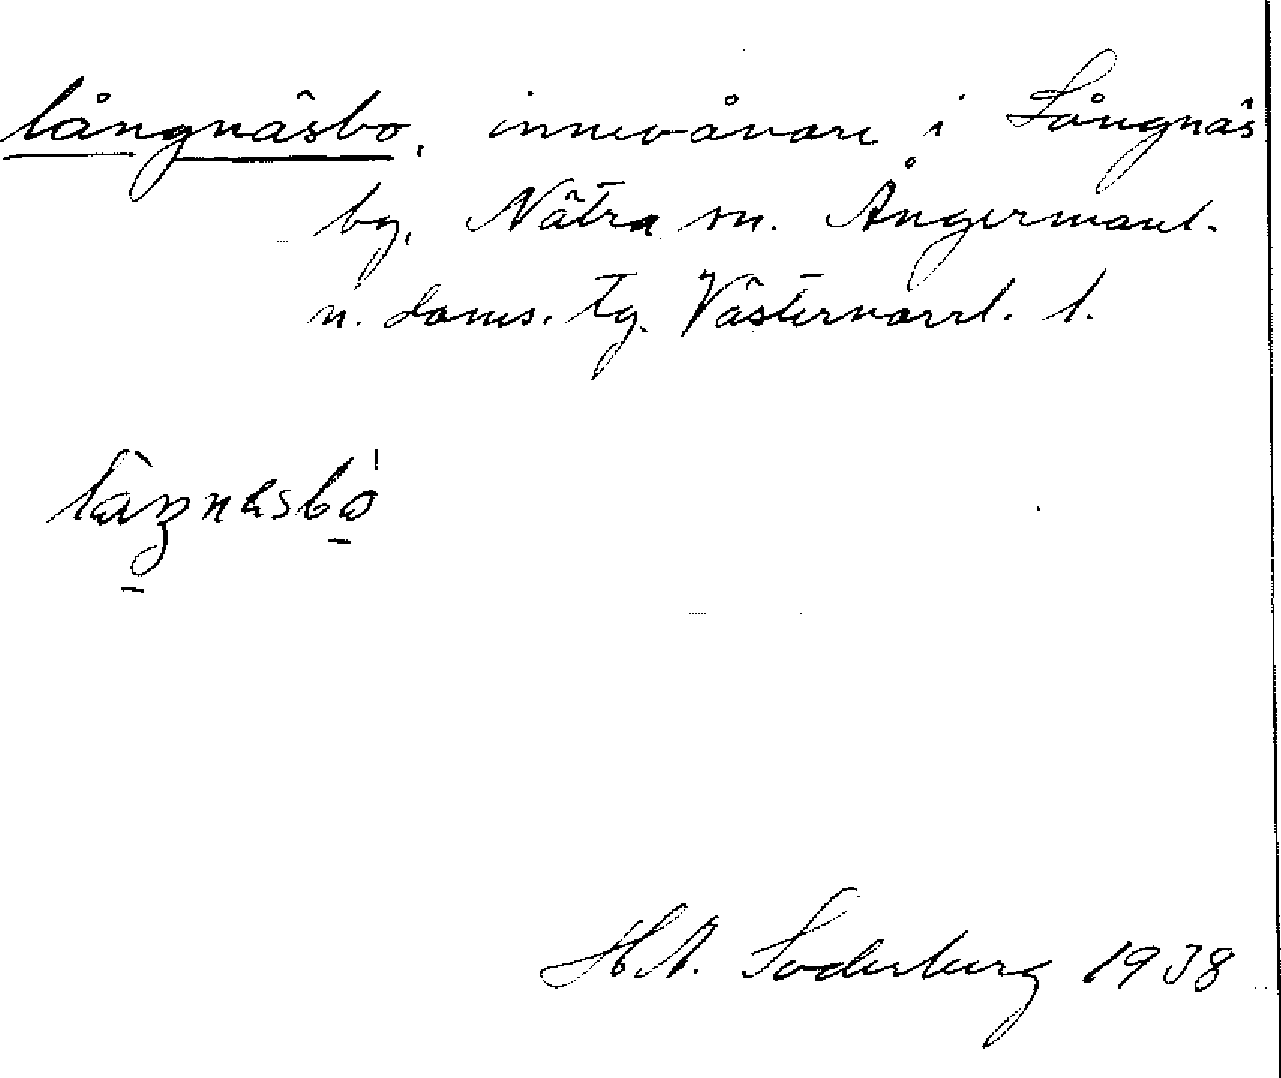 långnäsbo, innevånare i Långnäs
by, Nätra sn. Ångermanl.
n. doms. tg. Västernorrl. l.
H.A. Söderberg 1938